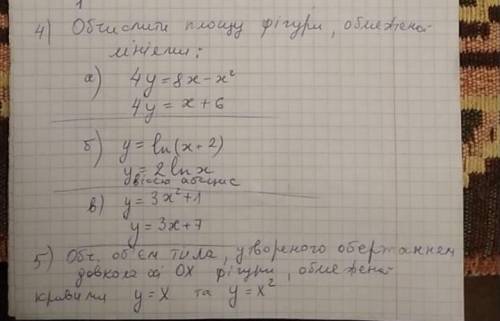 4) Обчислити площу фігури, обмеженої
лініями:
а) 4y = 8x - x²
4y = x + 6
б) y = ln(x + 2)
y = 2 ln x
віссю абсцис
в) y = 3x² + 1
y = 3x + 7
5) Обч. об'єм тіла, утвореного обертанням
довкола осі OX фігури, обмеженої
кривими y = x та y = x²